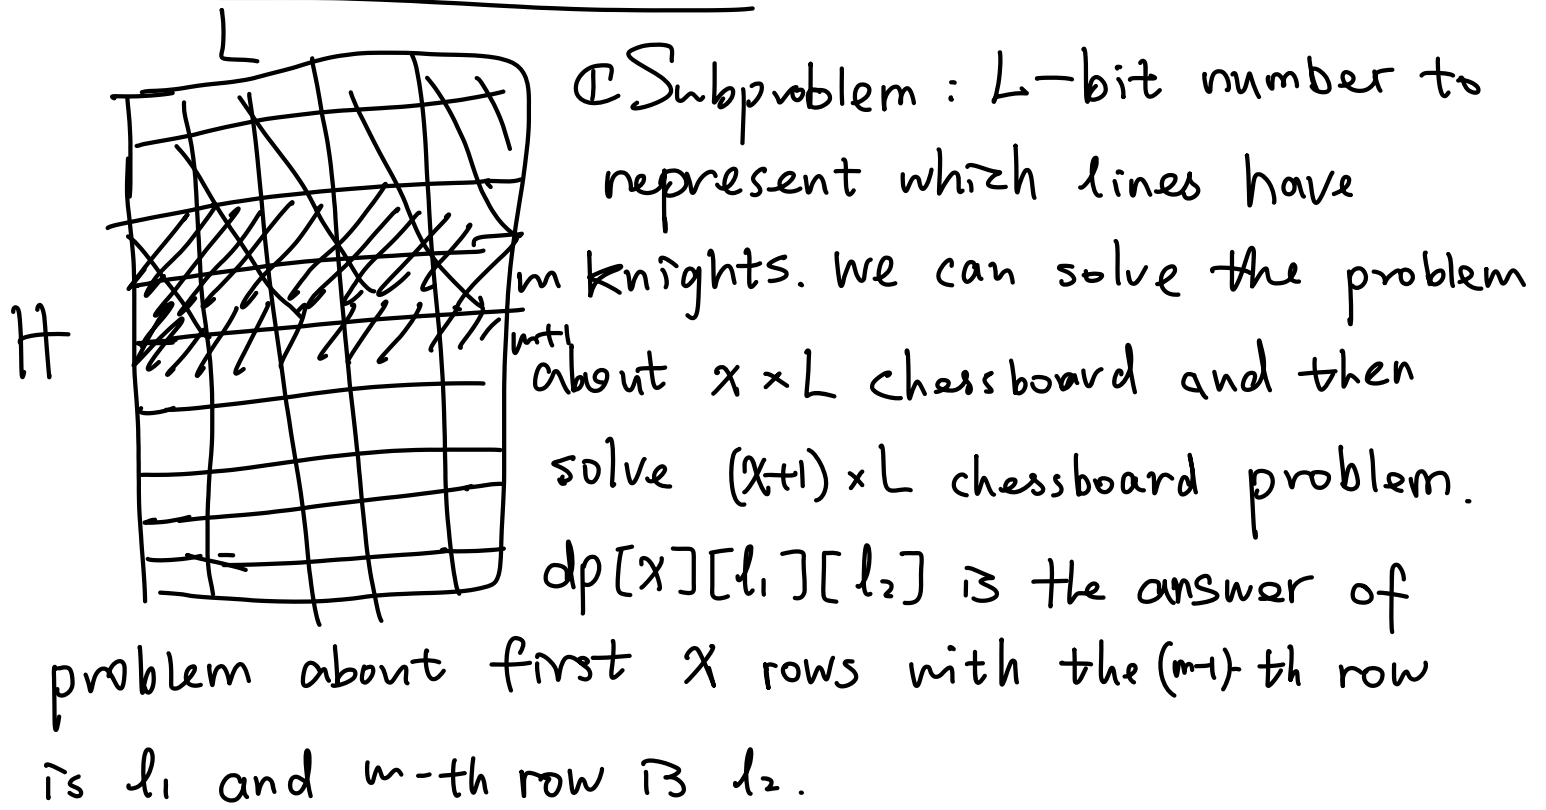 L
① Subproblem : L-bit number to
represent which lines have
m knights. We can solve the problem
H
m+1
about x × L chessboard and then
solve (x+1) × L chessboard problem.
dp[x][l₁][l₂] is the answer of
problem about first x rows with the (m-1)-th row
is l₁ and m-th row is l₂.